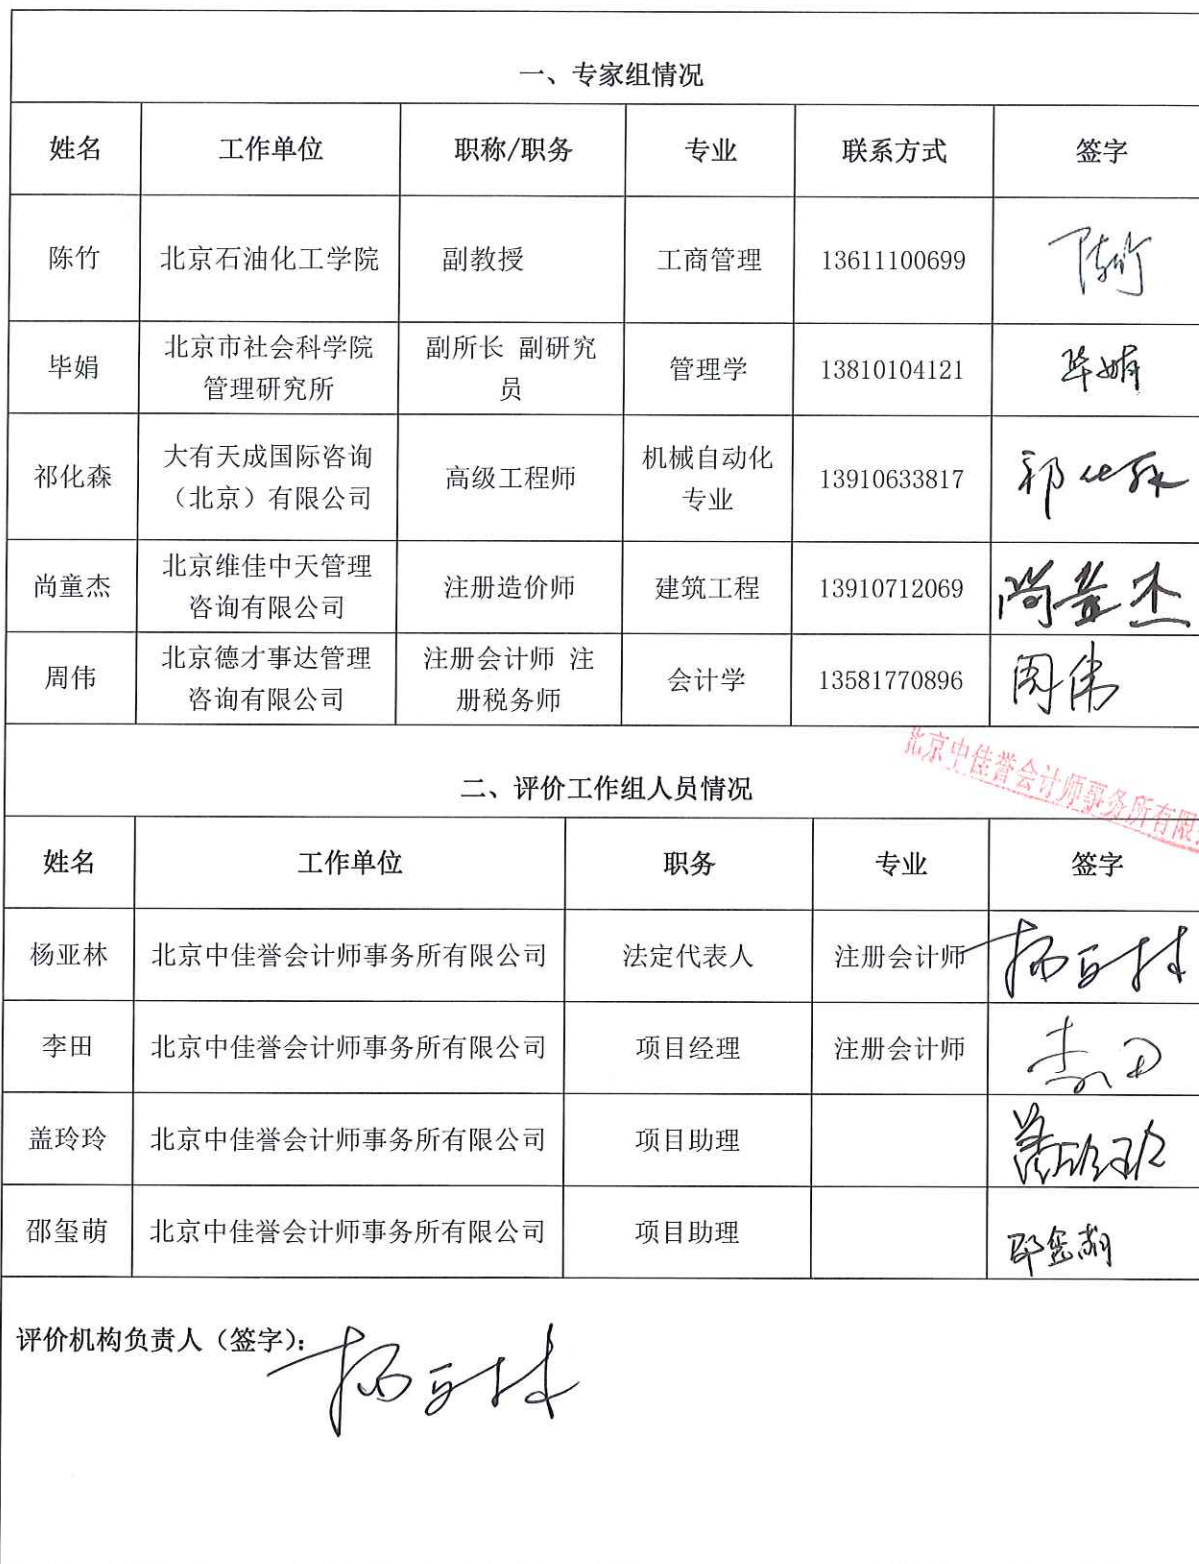 一、专家组情况
姓名 工作单位 职称/职务 专业 联系方式 签字
陈竹 北京石油化工学院 副教授 工商管理 13611100699 陈竹
北京市社会科学院 副所长 副研究
毕娟 管理学 13810104121 毕娟
管理研究所 员
大有天成国际咨询 机械自动化
祁化森 高级工程师 13910633817 祁化森
（北京）有限公司 专业
北京维佳中天管理
尚童杰 注册造价师 建筑工程 13910712069 尚童杰
咨询有限公司
北京德才事达管理 注册会计师 注
周伟 会计学 13581770896 周伟
咨询有限公司 册税务师
北京中佳誉会计师事务所有限
二、评价工作组人员情况
姓名 工作单位 职务 专业 签字
杨亚林 北京中佳誉会计师事务所有限公司 法定代表人 注册会计师 杨亚林
李田 北京中佳誉会计师事务所有限公司 项目经理 注册会计师 李田
盖玲玲 北京中佳誉会计师事务所有限公司 项目助理 盖玲玲
邵玺萌 北京中佳誉会计师事务所有限公司 项目助理 邵玺萌
评价机构负责人（签字）： 杨亚林